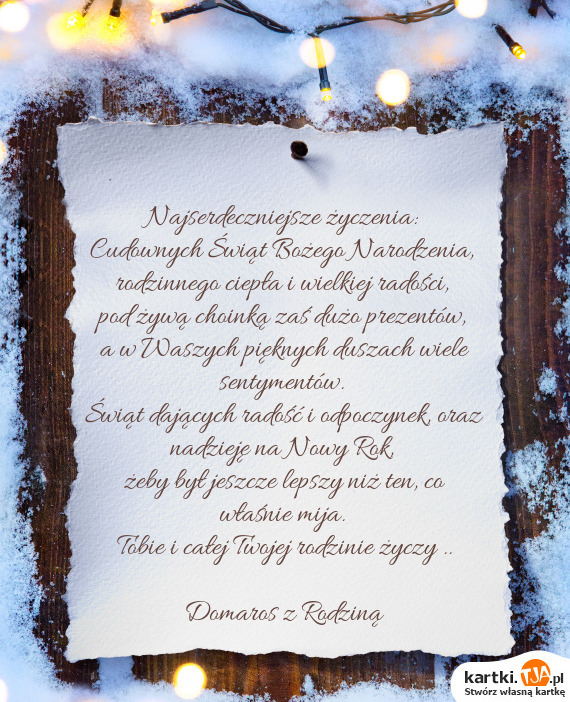 Najserdeczniejsze życzenia:
Cudownych Świąt Bożego Narodzenia,
rodzinnego ciepła i wielkiej radości,
pod żywą choinką zaś dużo prezentów,
a w Waszych pięknych duszach wiele
sentymentów.
Świąt dających radość i odpoczynek, oraz
nadzieję na Nowy Rok,
żeby był jeszcze lepszy niż ten, co
właśnie mija.
Tobie i całej Twojej rodzinie życzy ..
Domaros z Rodziną
kartki.TJA.pl
Stwórz własną kartkę